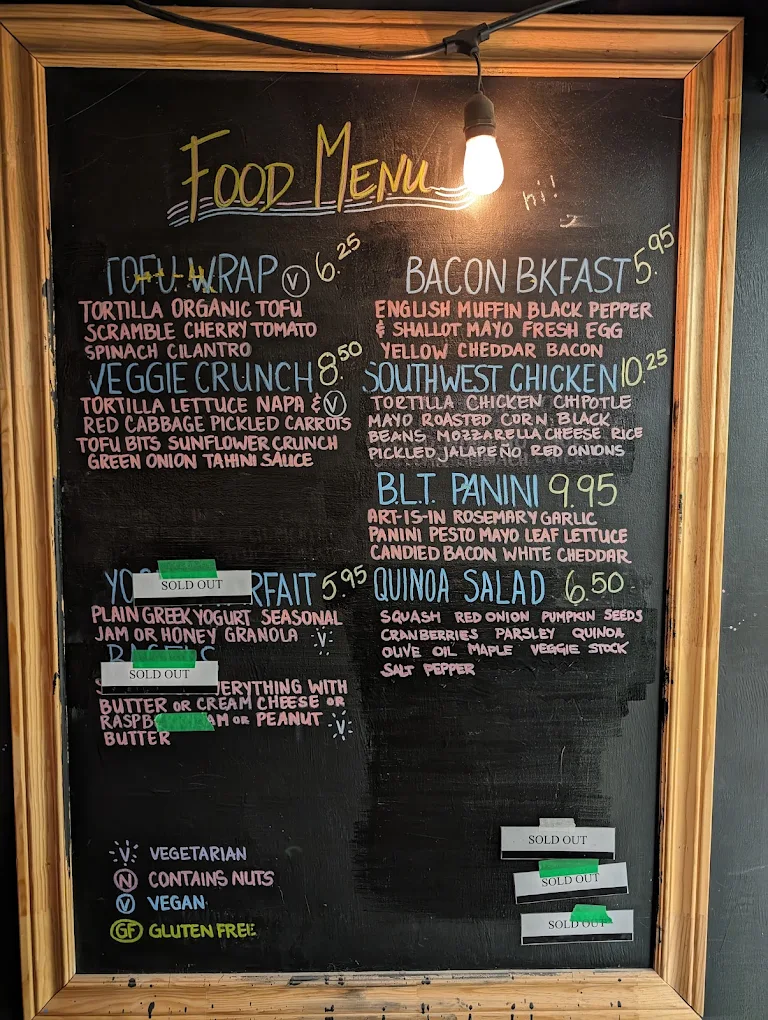 FOOD MENU
hi!
TOFU WRAP V 6.25
TORTILLA ORGANIC TOFU
SCRAMBLE CHERRY TOMATO
SPINACH CILANTRO
VEGGIE CRUNCH 8.50
TORTILLA LETTUCE NAPA & V
RED CABBAGE PICKLED CARROTS
TOFU BITS SUNFLOWER CRUNCH
GREEN ONION TAHINI SAUCE
YO SOLD OUT RFAIT 5.95
PLAIN GREEK YOGURT SEASONAL
JAM OR HONEY GRANOLA V
SOLD OUT
EVERYTHING WITH
BUTTER OR CREAM CHEESE OR
RASPB AM OR PEANUT V
BUTTER
BACON BKFAST 5.95
ENGLISH MUFFIN BLACK PEPPER
& SHALLOT MAYO FRESH EGG
YELLOW CHEDDAR BACON
SOUTHWEST CHICKEN 10.25
TORTILLA CHICKEN CHIPOTLE
MAYO ROASTED CORN BLACK
BEANS MOZZARELLA CHEESE RICE
PICKLED JALAPEÑO RED ONIONS
B.L.T. PANINI 9.95
ART-IS-IN ROSEMARY GARLIC
PANINI PESTO MAYO LEAF LETTUCE
CANDIED BACON WHITE CHEDDAR
QUINOA SALAD 6.50
SQUASH RED ONION PUMPKIN SEEDS
CRANBERRIES PARSLEY QUINOA
OLIVE OIL MAPLE VEGGIE STOCK
SALT PEPPER
V VEGETARIAN
N CONTAINS NUTS
V VEGAN
GF GLUTEN FREE
SOLD OUT
SOLD OUT
SOLD OUT